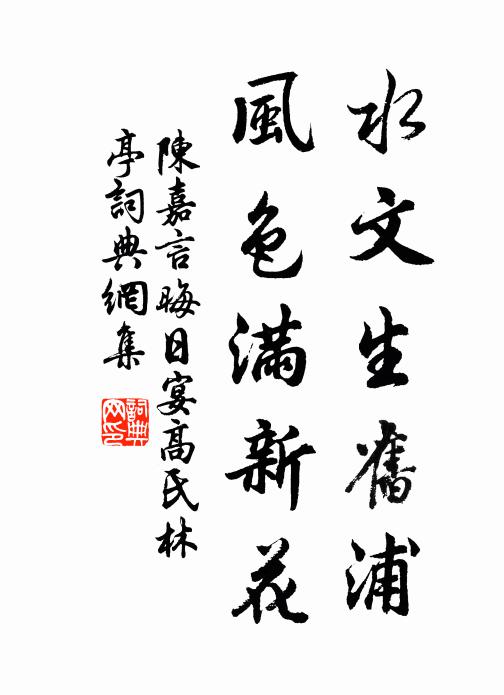 水文生舊浦
風色滿新花
陳嘉言晦日宴高氏林
亭詞典網集
詞典
网印